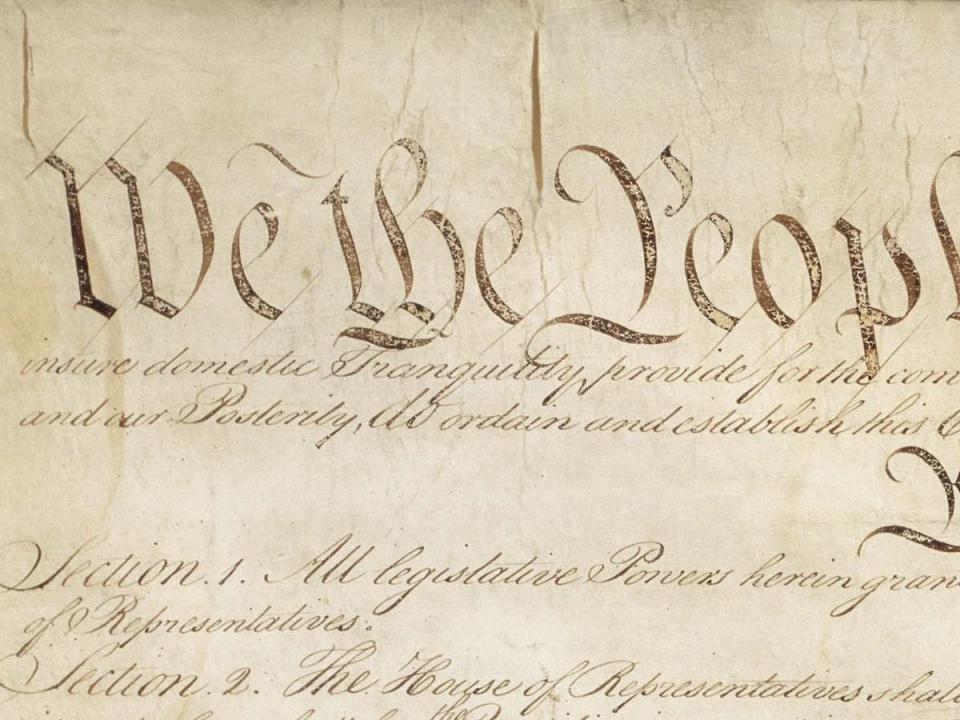 We the Peopl
insure domestic Tranquility, provide for the com
and our Posterity, do ordain and establish this C
Section. 1. All legislative Powers herein gran
of Representatives.
Section. 2. The House of Representatives shall